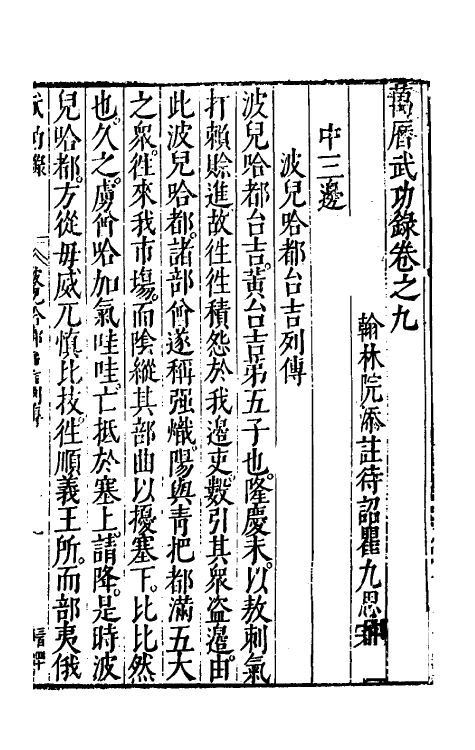 萬曆武功錄卷之九
翰林院添註待詔瞿九思
中三邊
波兒哈都台吉列傳
波兒哈都台吉黃台吉第五子也隆慶末以敖刺氣
打賴賒進故往往積怨於我邊吏數引其衆盜邊由
此波兒哈都諸部酋遂稱强熾陽與青把都滿五大
之衆徃來我市場而陰縱其部曲以擾塞下比比然
也久之虜酋哈加氣哇哇亡抵於塞上請降是時波
兒哈都方從毋威兀慎比技徃順義王所而部夷俄